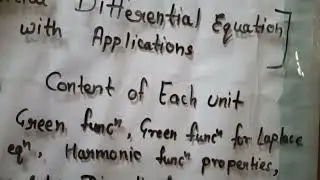 Differential Equation]
with Applications
Content of Each unit
Green funcⁿ, Green funcⁿ for Laplace
eqⁿ, Harmonic funcⁿ properties,